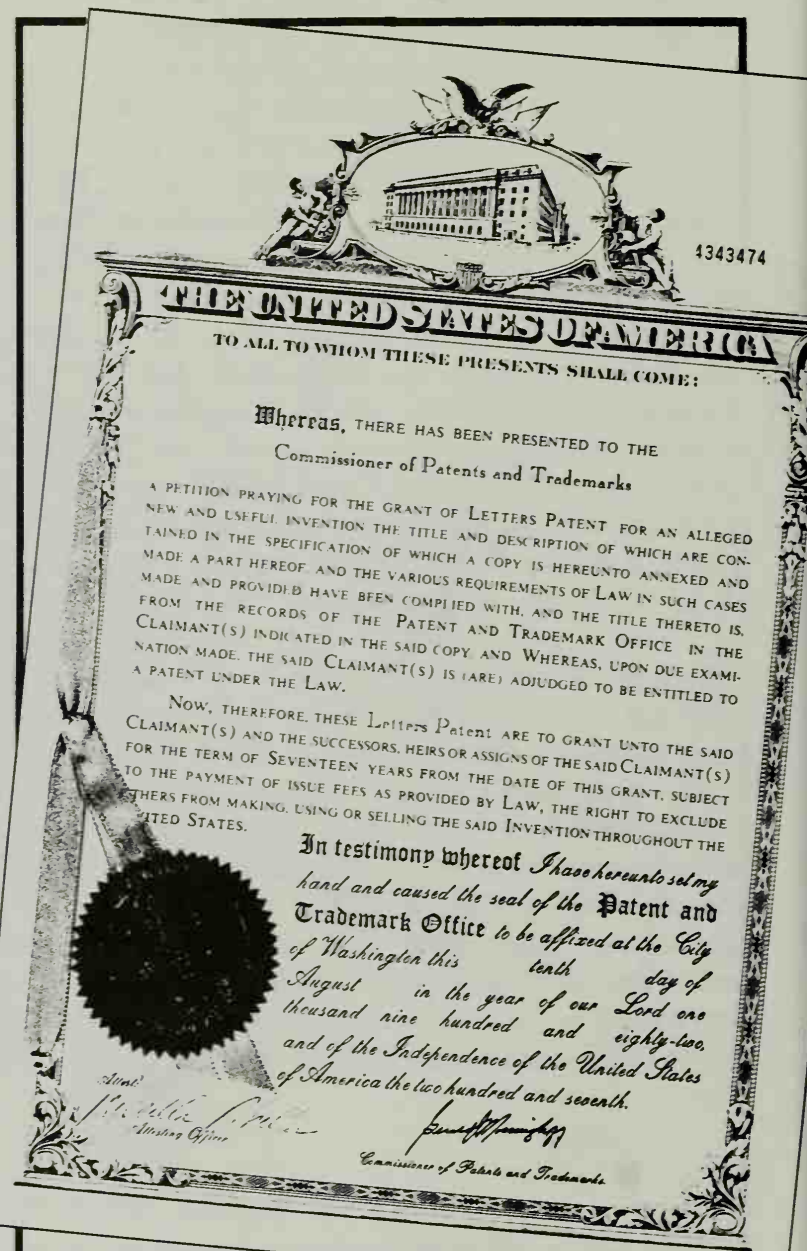 4343474
THE UNITED STATES OF AMERICA
TO ALL TO WHOM THESE PRESENTS SHALL COME:
Whereas, THERE HAS BEEN PRESENTED TO THE
Commissioner of Patents and Trademarks
A PETITION PRAYING FOR THE GRANT OF LETTERS PATENT FOR AN ALLEGED
NEW AND USEFUL INVENTION THE TITLE AND DESCRIPTION OF WHICH ARE CON-
TAINED IN THE SPECIFICATION OF WHICH A COPY IS HEREUNTO ANNEXED AND
MADE A PART HEREOF, AND THE VARIOUS REQUIREMENTS OF LAW IN SUCH CASES
MADE AND PROVIDED HAVE BEEN COMPLIED WITH, AND THE TITLE THERETO IS,
FROM THE RECORDS OF THE PATENT AND TRADEMARK OFFICE IN THE
CLAIMANT(S) INDICATED IN THE SAID COPY, AND WHEREAS, UPON DUE EXAMI-
NATION MADE, THE SAID CLAIMANT(S) IS (ARE) ADJUDGED TO BE ENTITLED TO
A PATENT UNDER THE LAW.
NOW, THEREFORE, THESE Letters Patent ARE TO GRANT UNTO THE SAID
CLAIMANT(S) AND THE SUCCESSORS, HEIRS OR ASSIGNS OF THE SAID CLAIMANT(S)
FOR THE TERM OF SEVENTEEN YEARS FROM THE DATE OF THIS GRANT, SUBJECT
TO THE PAYMENT OF ISSUE FEES AS PROVIDED BY LAW, THE RIGHT TO EXCLUDE
THERS FROM MAKING, USING OR SELLING THE SAID INVENTION THROUGHOUT THE
ITED STATES.
In testimony whereof I have hereunto set my
hand and caused the seal of the Patent and
Trademark Office to be affixed at the City
of Washington this tenth day of
August in the year of our Lord one
thousand nine hundred and eighty-two,
and of the Independence of the United States
of America the two hundred and seventh.
Attest
Attesting Officer
Commissioner of Patents and Trademarks.